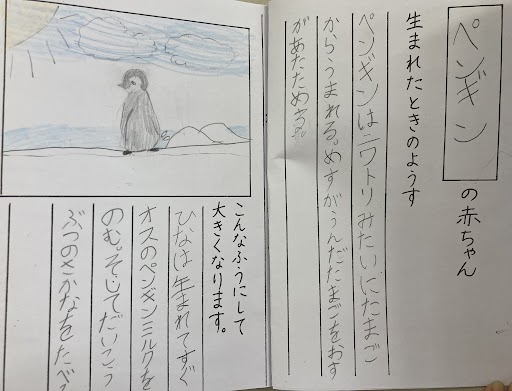 ペンギン
の赤ちゃん
生まれたときのようす
ペンギンはニワトリみたいにたまご
からうまれる。めすがうんだたまごをおす
があたためる。
こんなふうにして
大きくなります。
ひなは生まれてすぐ
オスのペンギンミルクを
のむ。そしてだいこう
ぶつのさかなをたべ